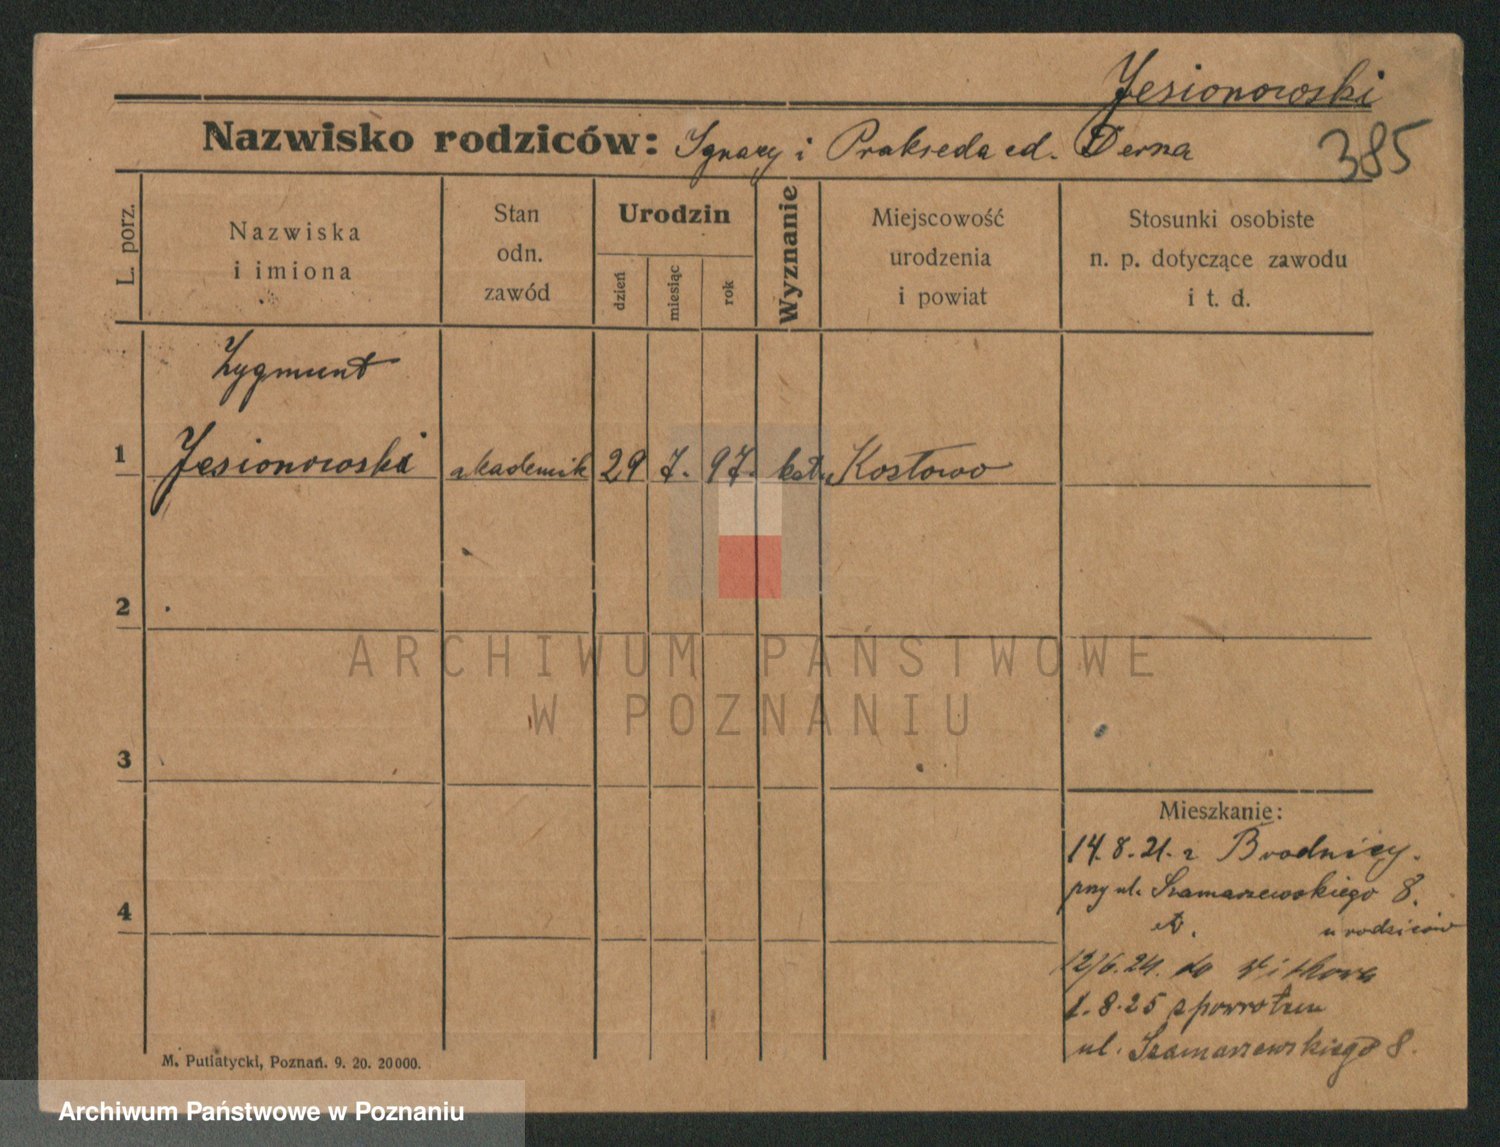 Jesionowski
Nazwisko rodziców: Ignacy i Prakseda cd. Derna
385
L. porz.
Nazwiska
i imiona
Stan
odn.
zawód
Urodzin
dzień
miesiąc
rok
Wyznanie
Miejscowość
urodzenia
i powiat
Stosunki osobiste
n. p. dotyczące zawodu
i t. d.
Zygmunt
1 Jesionowski akademik 29 7. 97. kat. Kosłowo
2
3
4
Mieszkanie:
14.8.21. z Brodnicy.
przy ul. Szamarzewskiego 8.
u rodziców
12/6.24. do Witkowa
1.8.25 z powrotem
ul. Szamarzewskiego 8.
M. Putiatycki, Poznań. 9. 20. 20000.
ARCHIWUM PAŃSTWOWE
W POZNANIU
Archiwum Państwowe w Poznaniu